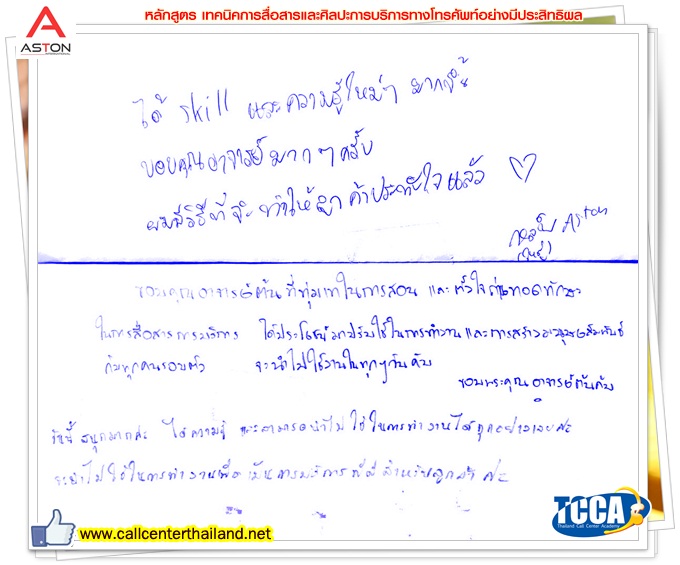 หลักสูตร เทคนิคการสื่อสารและศิลปะการบริการทางโทรศัพท์อย่างมีประสิทธิผล
ASTON
ได้ skill และความรู้ใหม่ๆ มากขึ้น
ขอบคุณอาจารย์มากๆครับ
ผมมีวิธีที่จะทำให้ลูกค้าประทับใจแล้ว
Aston
ขอบคุณอาจารย์ต้นที่ทุ่มเทในการสอน และตั้งใจถ่ายทอดทักษะ
ในการสื่อสารการบริการ ได้ประโยชน์มาปรับใช้ในการทำงานและการสร้างมนุษยสัมพันธ์
กับทุกคนรอบตัว จะนำไปใช้งานในทุกๆวันครับ
ขอบพระคุณอาจารย์ต้นครับ
วันนี้สนุกมากค่ะ ได้ความรู้ และสามารถนำไปใช้ในการทำงานได้ทุกอย่างเลยค่ะ
จะนำไปใช้ในการทำงานเพื่อเน้นการบริการที่ดีสำหรับลูกค้าค่ะ
www.callcenterthailand.net
TCCA
Thailand Call Center Academy